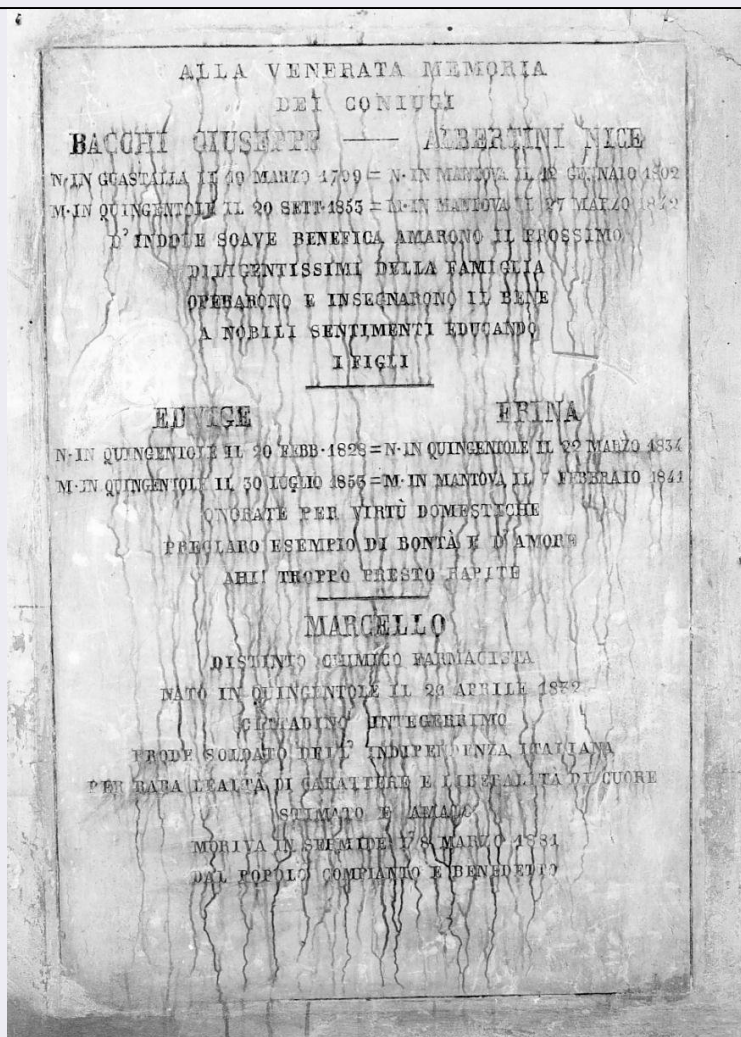 ALLA VENERATA MEMORIA
DEI CONIUGI
BACCHI GIUSEPPE — ALBERTINI NICE
N·IN GUASTALLA IL MARZO = N·IN MANTOVA IL 12 GENNAIO 1802
M·IN QUINGENTOLE IL 20 SETT·1853 = M·IN MANTOVA IL 27 MARZO
D'INDOLE SOAVE BENEFICA AMARONO IL PROSSIMO
DILIGENTISSIMI DELLA FAMIGLIA
OPERARONO E INSEGNARONO IL BENE
A NOBILI SENTIMENTI EDUCANDO
I FIGLI
EDVIGE ERINA
N·IN QUINGENTOLE IL 20 FEBB·1828 = N·IN QUINGENTOLE IL 22 MARZO 1834
M·IN QUINGENTOLE IL 30 LUGLIO 1853 = M·IN MANTOVA IL 7 FEBBRAIO 1841
ONORATE PER VIRTÙ DOMESTICHE
PRECLARO ESEMPIO DI BONTÀ E D'AMORE
AHI! TROPPO PRESTO RAPITE
MARCELLO
DISTINTO CHIMICO FARMACISTA
NATO IN QUINGENTOLE IL APRILE
CITTADINO INTEGERRIMO
PRODE SOLDATO DELL' INDIPENDENZA ITALIANA
PER RARA LEALTÀ DI CARATTERE E LIBERALITÀ DI CUORE
STIMATO E AMATO
MORIVA IN SERMIDE L'8 MARZO 1881
DAL POPOLO COMPIANTO E BENEDETTO